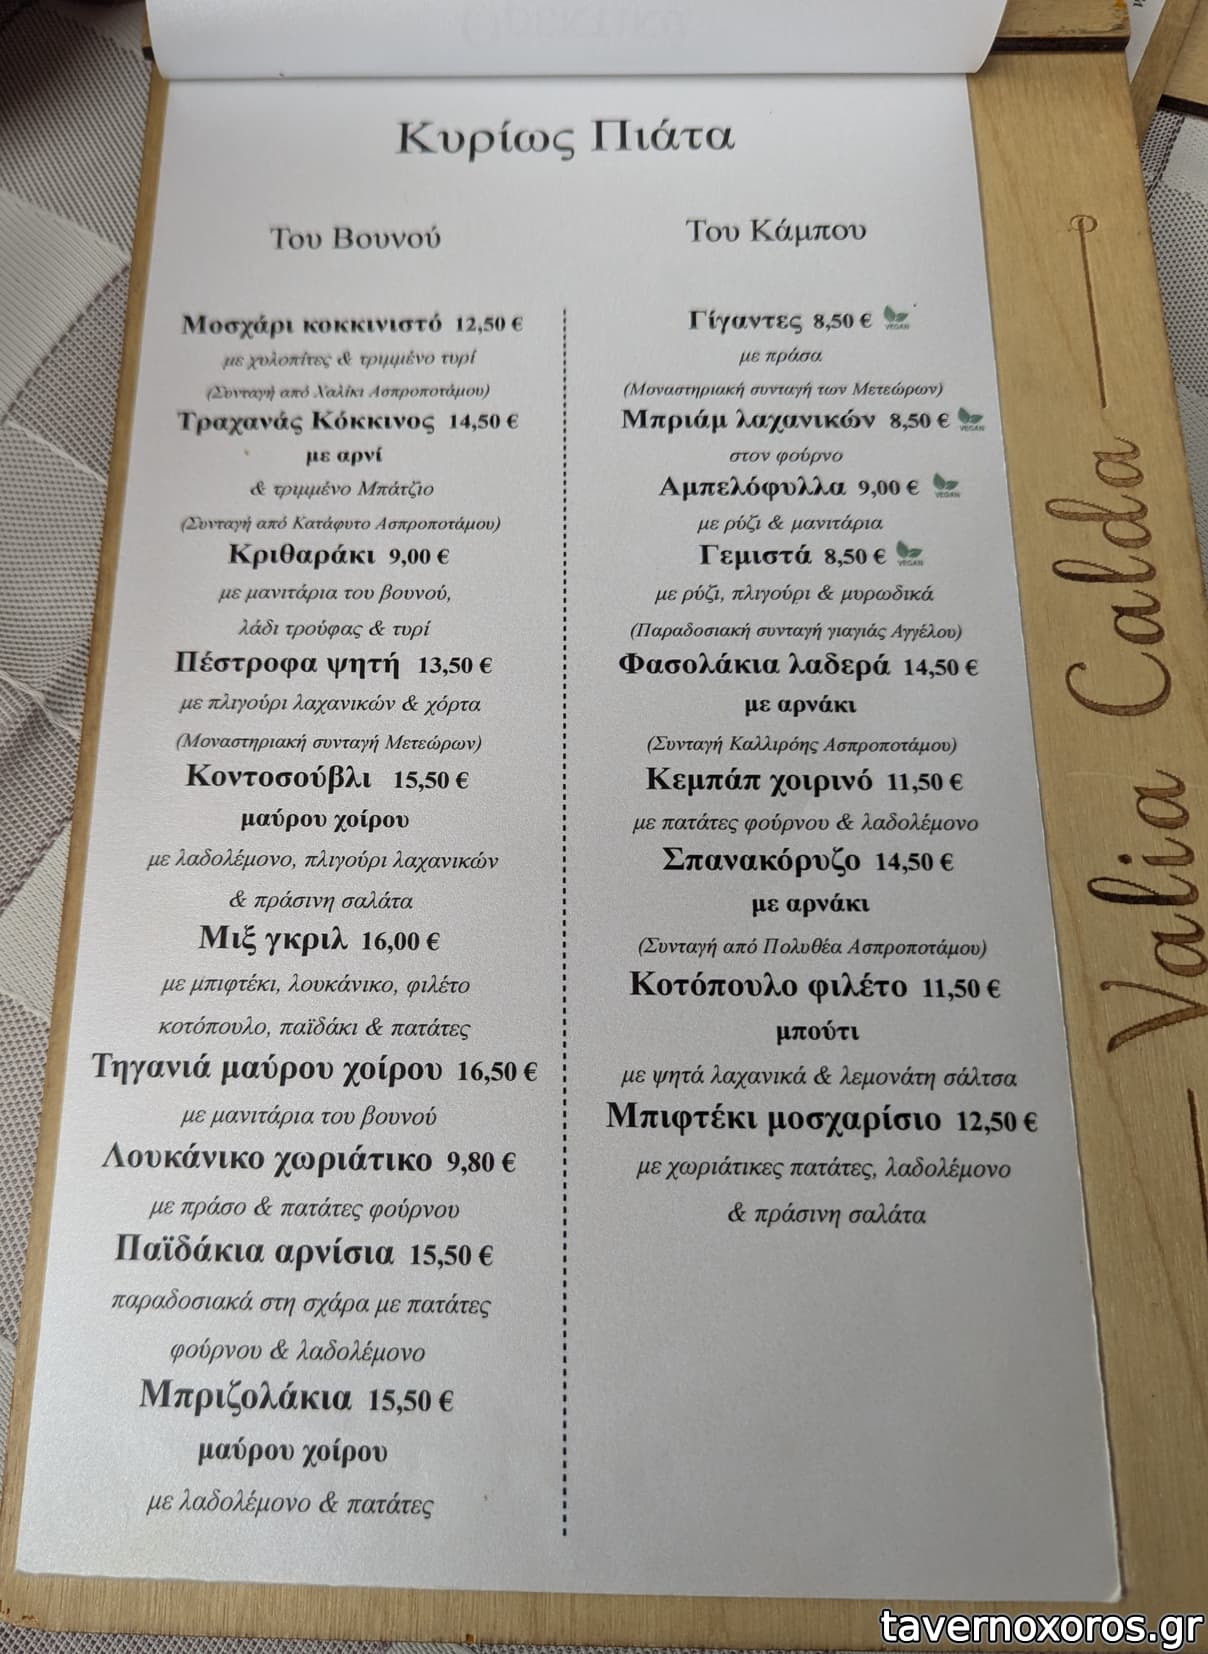 Κυρίως Πιάτα
Του Βουνού
Μοσχάρι κοκκινιστό 12,50 €
με χυλοπίτες & τριμμένο τυρί
(Συνταγή από Χαλίκι Ασπροποτάμου)
Τραχανάς Κόκκινος 14,50 €
με αρνί
& τριμμένο Μπάτζιο
(Συνταγή από Κατάφυτο Ασπροποτάμου)
Κριθαράκι 9,00 €
με μανιτάρια του βουνού,
λάδι τρούφας & τυρί
Πέστροφα ψητή 13,50 €
με πλιγούρι λαχανικών & χόρτα
(Μοναστηριακή συνταγή Μετεώρων)
Κοντοσούβλι 15,50 €
μαύρου χοίρου
με λαδολέμονο, πλιγούρι λαχανικών
& πράσινη σαλάτα
Μιξ γκριλ 16,00 €
με μπιφτέκι, λουκάνικο, φιλέτο
κοτόπουλο, παϊδάκι & πατάτες
Τηγανιά μαύρου χοίρου 16,50 €
με μανιτάρια του βουνού
Λουκάνικο χωριάτικο 9,80 €
με πράσο & πατάτες φούρνου
Παϊδάκια αρνίσια 15,50 €
παραδοσιακά στη σχάρα με πατάτες
φούρνου & λαδολέμονο
Μπριζολάκια 15,50 €
μαύρου χοίρου
με λαδολέμονο & πατάτες
Του Κάμπου
Γίγαντες 8,50 € VEGAN
με πράσα
(Μοναστηριακή συνταγή των Μετεώρων)
Μπριάμ λαχανικών 8,50 € VEGAN
στον φούρνο
Αμπελόφυλλα 9,00 € VEGAN
με ρύζι & μανιτάρια
Γεμιστά 8,50 € VEGAN
με ρύζι, πλιγούρι & μυρωδικά
(Παραδοσιακή συνταγή γιαγιάς Αγγέλου)
Φασολάκια λαδερά 14,50 €
με αρνάκι
(Συνταγή Καλλιρόης Ασπροποτάμου)
Κεμπάπ χοιρινό 11,50 €
με πατάτες φούρνου & λαδολέμονο
Σπανακόρυζο 14,50 €
με αρνάκι
(Συνταγή από Πολυθέα Ασπροποτάμου)
Κοτόπουλο φιλέτο 11,50 €
μπούτι
με ψητά λαχανικά & λεμονάτη σάλτσα
Μπιφτέκι μοσχαρίσιο 12,50 €
με χωριάτικες πατάτες, λαδολέμονο
& πράσινη σαλάτα
Valia Calda
tavernoxoros.gr